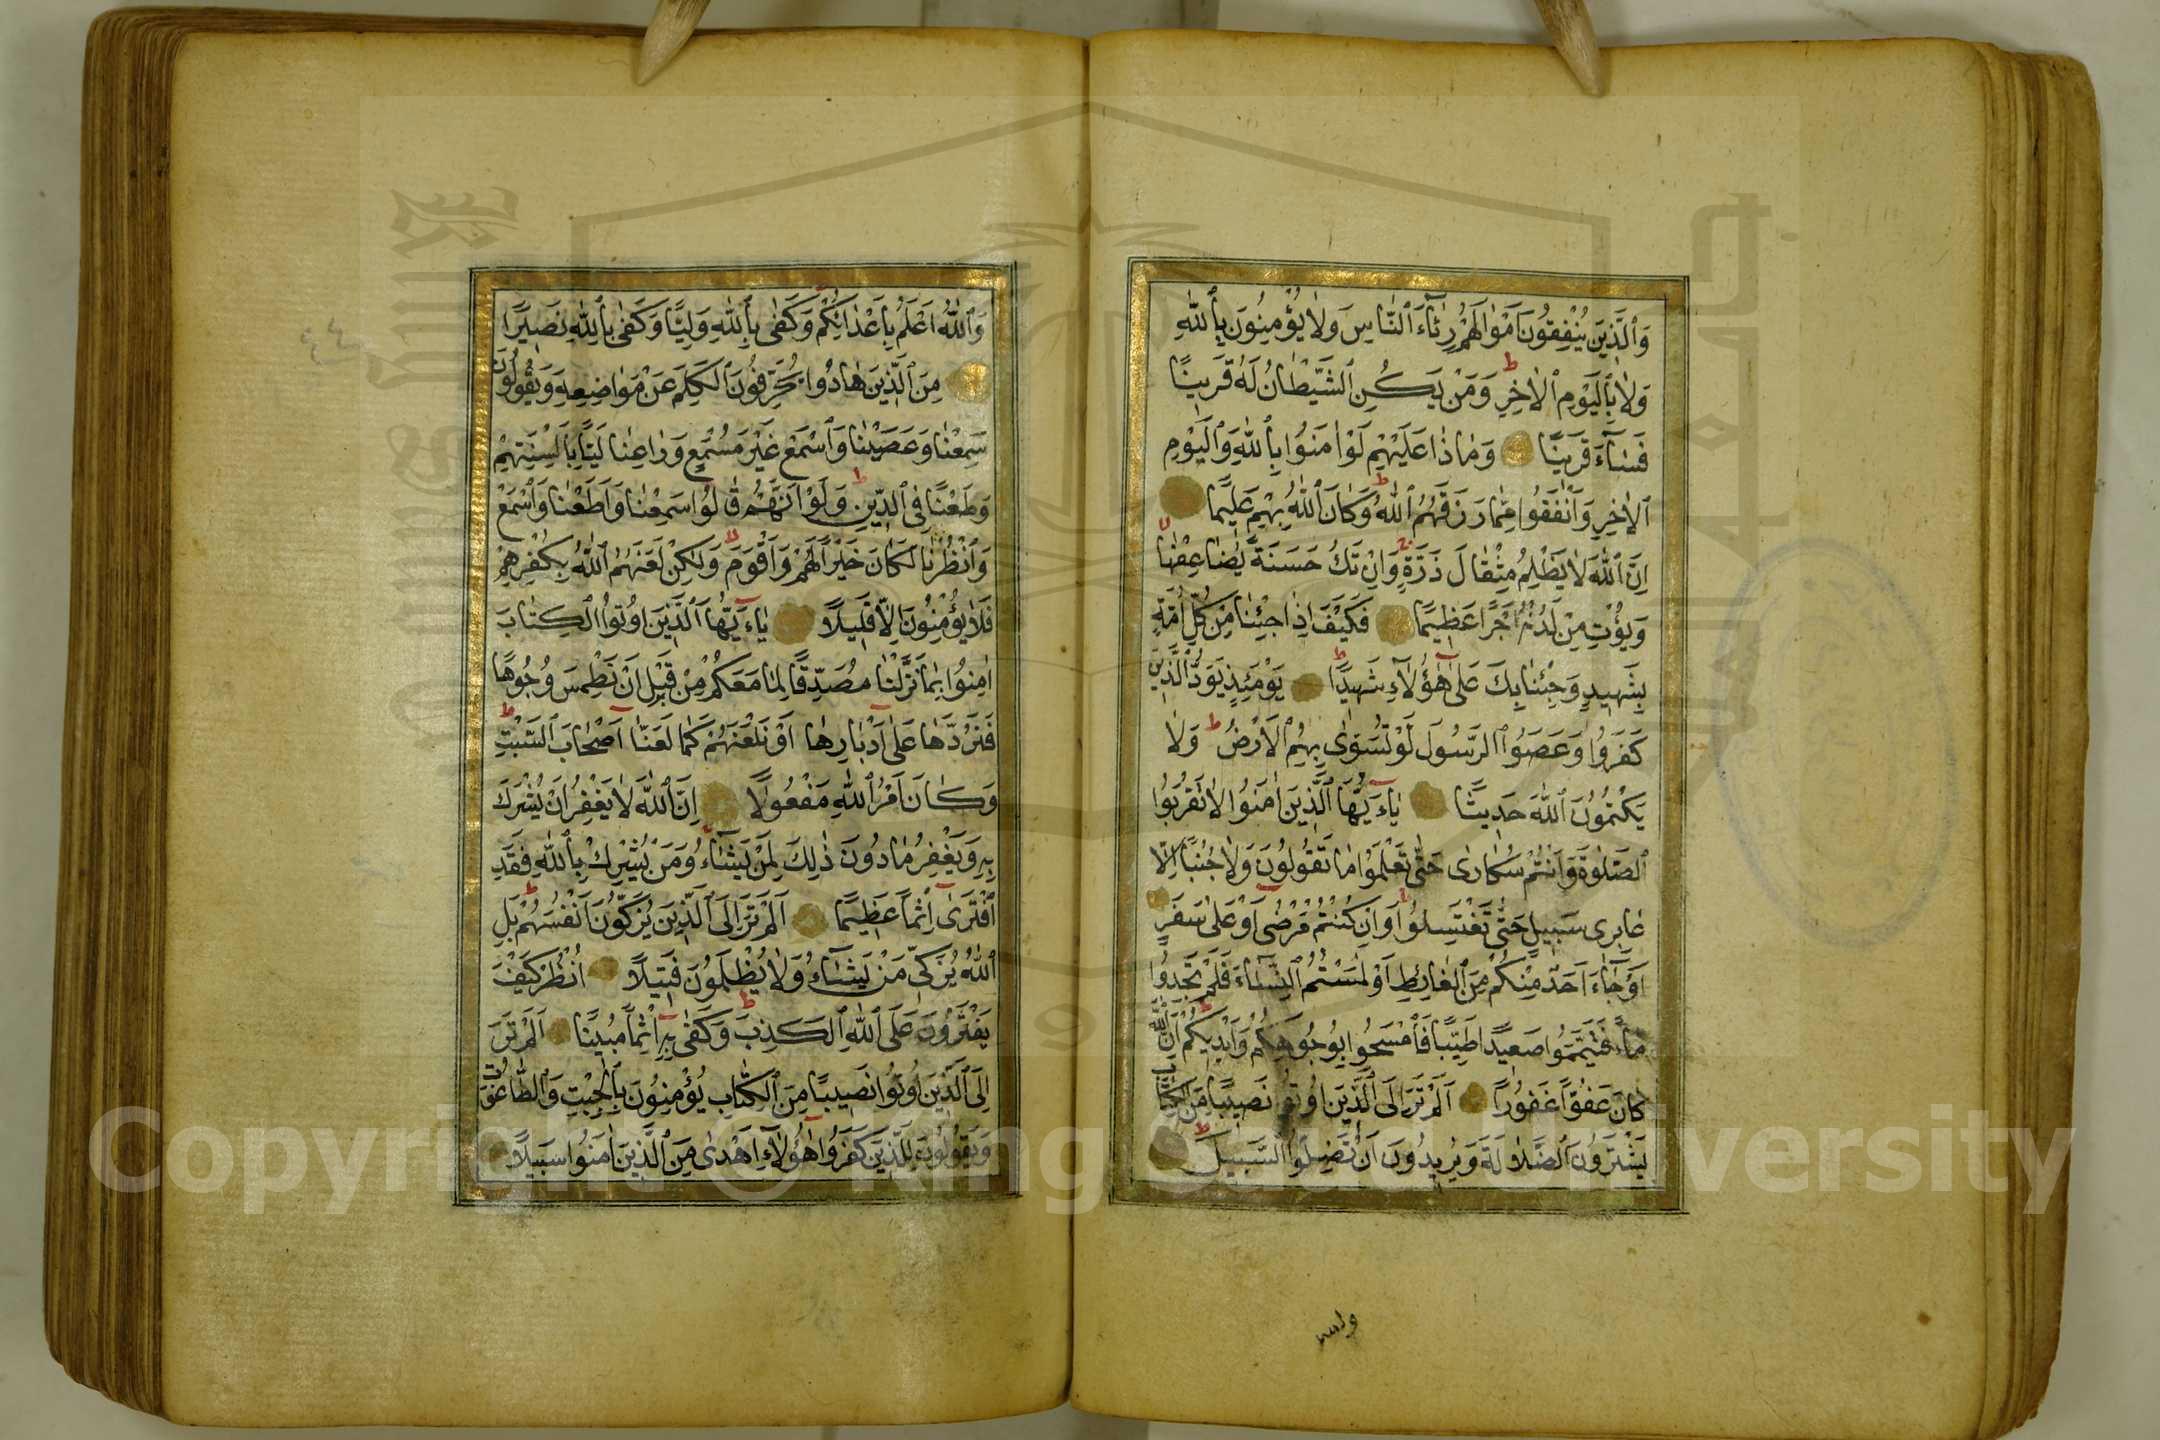 وَٱلَّذِينَ يُنْفِقُونَ اَمْوٰالَهُمْ رِئٰٓاءَ ٱلنّٰاسِ وَلٰا يُؤْمِنُونَ بِٱللّٰهِ
وَلٰا بِٱلْيَوْمِ ٱلْاٰخِرِ ط وَمَنْ يَكُنِ ٱلشَّيْطٰانُ لَهُ قَرِينًا
فَسٰٓاءَ قَرِينًا وَمٰاذٰا عَلَيْهِمْ لَوْ اٰمَنُوا بِٱللّٰهِ وَٱلْيَوْمِ
ٱلْاٰخِرِ وَاَنْفَقُوا مِمّٰا رَزَقَهُمُ ٱللّٰهُ ط وَكٰانَ ٱللّٰهُ بِهِمْ عَلِيمًا
اِنَّ ٱللّٰهَ لٰا يَظْلِمُ مِثْقٰالَ ذَرَّةٍ وَاِنْ تَكُ حَسَنَةً يُضٰاعِفْهٰا
وَيُؤْتِ مِنْ لَدُنْهُ اَجْرًا عَظِيمًا فَكَيْفَ اِذٰا جِئْنٰا مِنْ كُلِّ اُمَّةٍ
بِشَهِيدٍ وَجِئْنٰا بِكَ عَلٰى هٰٓؤُلٰٓاءِ شَهِيدًا ط يَوْمَئِذٍ يَوَدُّ ٱلَّذِينَ
كَفَرُوا وَعَصَوُا ٱلرَّسُولَ لَوْ تُسَوّٰى بِهِمُ ٱلْاَرْضُ ط وَلٰا
يَكْتُمُونَ ٱللّٰهَ حَدِيثًا يٰٓاءَيُّهَا ٱلَّذِينَ اٰمَنُوا لٰا تَقْرَبُوا
ٱلصَّلٰوةَ وَاَنْتُمْ سُكٰارٰى حَتّٰى تَعْلَمُوا مٰا تَقُولُونَ وَلٰا جُنُبًا اِلّٰا
عٰابِرِى سَبِيلٍ حَتّٰى تَغْتَسِلُوا وَاِنْ كُنْتُمْ مَرْضٰٓى اَوْ عَلٰى سَفَرٍ
اَوْ جٰٓاءَ اَحَدٌ مِنْكُمْ مِنَ ٱلْغٰٓائِطِ اَوْ لٰمَسْتُمُ ٱلنِّسٰٓاءَ فَلَمْ تَجِدُوا
مٰٓاءً فَتَيَمَّمُوا صَعِيدًا طَيِّبًا فَٱمْسَحُوا بِوُجُوهِكُمْ وَاَيْدِيكُمْ ط اِنَّ ٱللّٰهَ
كٰانَ عَفُوًّا غَفُورًا اَلَمْ تَرَ اِلَى ٱلَّذِينَ اُوتُوا نَصِيبًا مِنَ ٱلْكِتٰابِ
يَشْتَرُونَ ٱلضَّلٰالَةَ وَيُرِيدُونَ اَنْ تَضِلُّوا ٱلسَّبِيلَ ط
والله
وَٱللّٰهُ اَعْلَمُ بِاَعْدٰٓائِكُمْ وَكَفٰى بِٱللّٰهِ وَلِيًّا وَكَفٰى بِٱللّٰهِ نَصِيرًا
مِنَ ٱلَّذِينَ هٰادُوا يُحَرِّفُونَ ٱلْكَلِمَ عَنْ مَوٰاضِعِهِ وَيَقُولُونَ
سَمِعْنٰا وَعَصَيْنٰا وَٱسْمَعْ غَيْرَ مُسْمَعٍ وَرٰاعِنٰا لَيًّا بِاَلْسِنَتِهِمْ
وَطَعْنًا فِى ٱلدِّينِ ط وَلَوْ اَنَّهُمْ قٰالُوا سَمِعْنٰا وَاَطَعْنٰا وَٱسْمَعْ
وَٱنْظُرْنٰا لَكٰانَ خَيْرًا لَهُمْ وَاَقْوَمَ لا وَلٰكِنْ لَعَنَهُمُ ٱللّٰهُ بِكُفْرِهِمْ
فَلٰا يُؤْمِنُونَ اِلّٰا قَلِيلًا يٰٓاءَيُّهَا ٱلَّذِينَ اُوتُوا ٱلْكِتٰابَ
اٰمِنُوا بِمٰا نَزَّلْنٰا مُصَدِّقًا لِمٰا مَعَكُمْ مِنْ قَبْلِ اَنْ نَطْمِسَ وُجُوهًا
فَنَرُدَّهٰا عَلٰٓى اَدْبٰارِهٰا اَوْ نَلْعَنَهُمْ كَمٰا لَعَنّٰٓا اَصْحٰابَ ٱلسَّبْتِ ط
وَكٰانَ اَمْرُ ٱللّٰهِ مَفْعُولًا اِنَّ ٱللّٰهَ لٰا يَغْفِرُ اَنْ يُشْرَكَ
بِهِ وَيَغْفِرُ مٰا دُونَ ذٰلِكَ لِمَنْ يَشٰٓاءُ وَمَنْ يُشْرِكْ بِٱللّٰهِ فَقَدِ
ٱفْتَرٰىٓ اِثْمًا عَظِيمًا اَلَمْ تَرَ اِلَى ٱلَّذِينَ يُزَكُّونَ اَنْفُسَهُمْ بَلِ
ٱللّٰهُ يُزَكِّى مَنْ يَشٰٓاءُ وَلٰا يُظْلَمُونَ فَتِيلًا اُنْظُرْ كَيْفَ
يَفْتَرُونَ عَلَى ٱللّٰهِ ٱلْكَذِبَ ط وَكَفٰى بِهِٓ اِثْمًا مُبِينًا اَلَمْ تَرَ
اِلَى ٱلَّذِينَ اُوتُوا نَصِيبًا مِنَ ٱلْكِتٰابِ يُؤْمِنُونَ بِٱلْجِبْتِ وَٱلطّٰاغُوتِ
وَيَقُولُونَ لِلَّذِينَ كَفَرُوا هٰٓؤُلٰٓاءِ اَهْدٰى مِنَ ٱلَّذِينَ اٰمَنُوا سَبِيلًا
Copyright © King Saud University